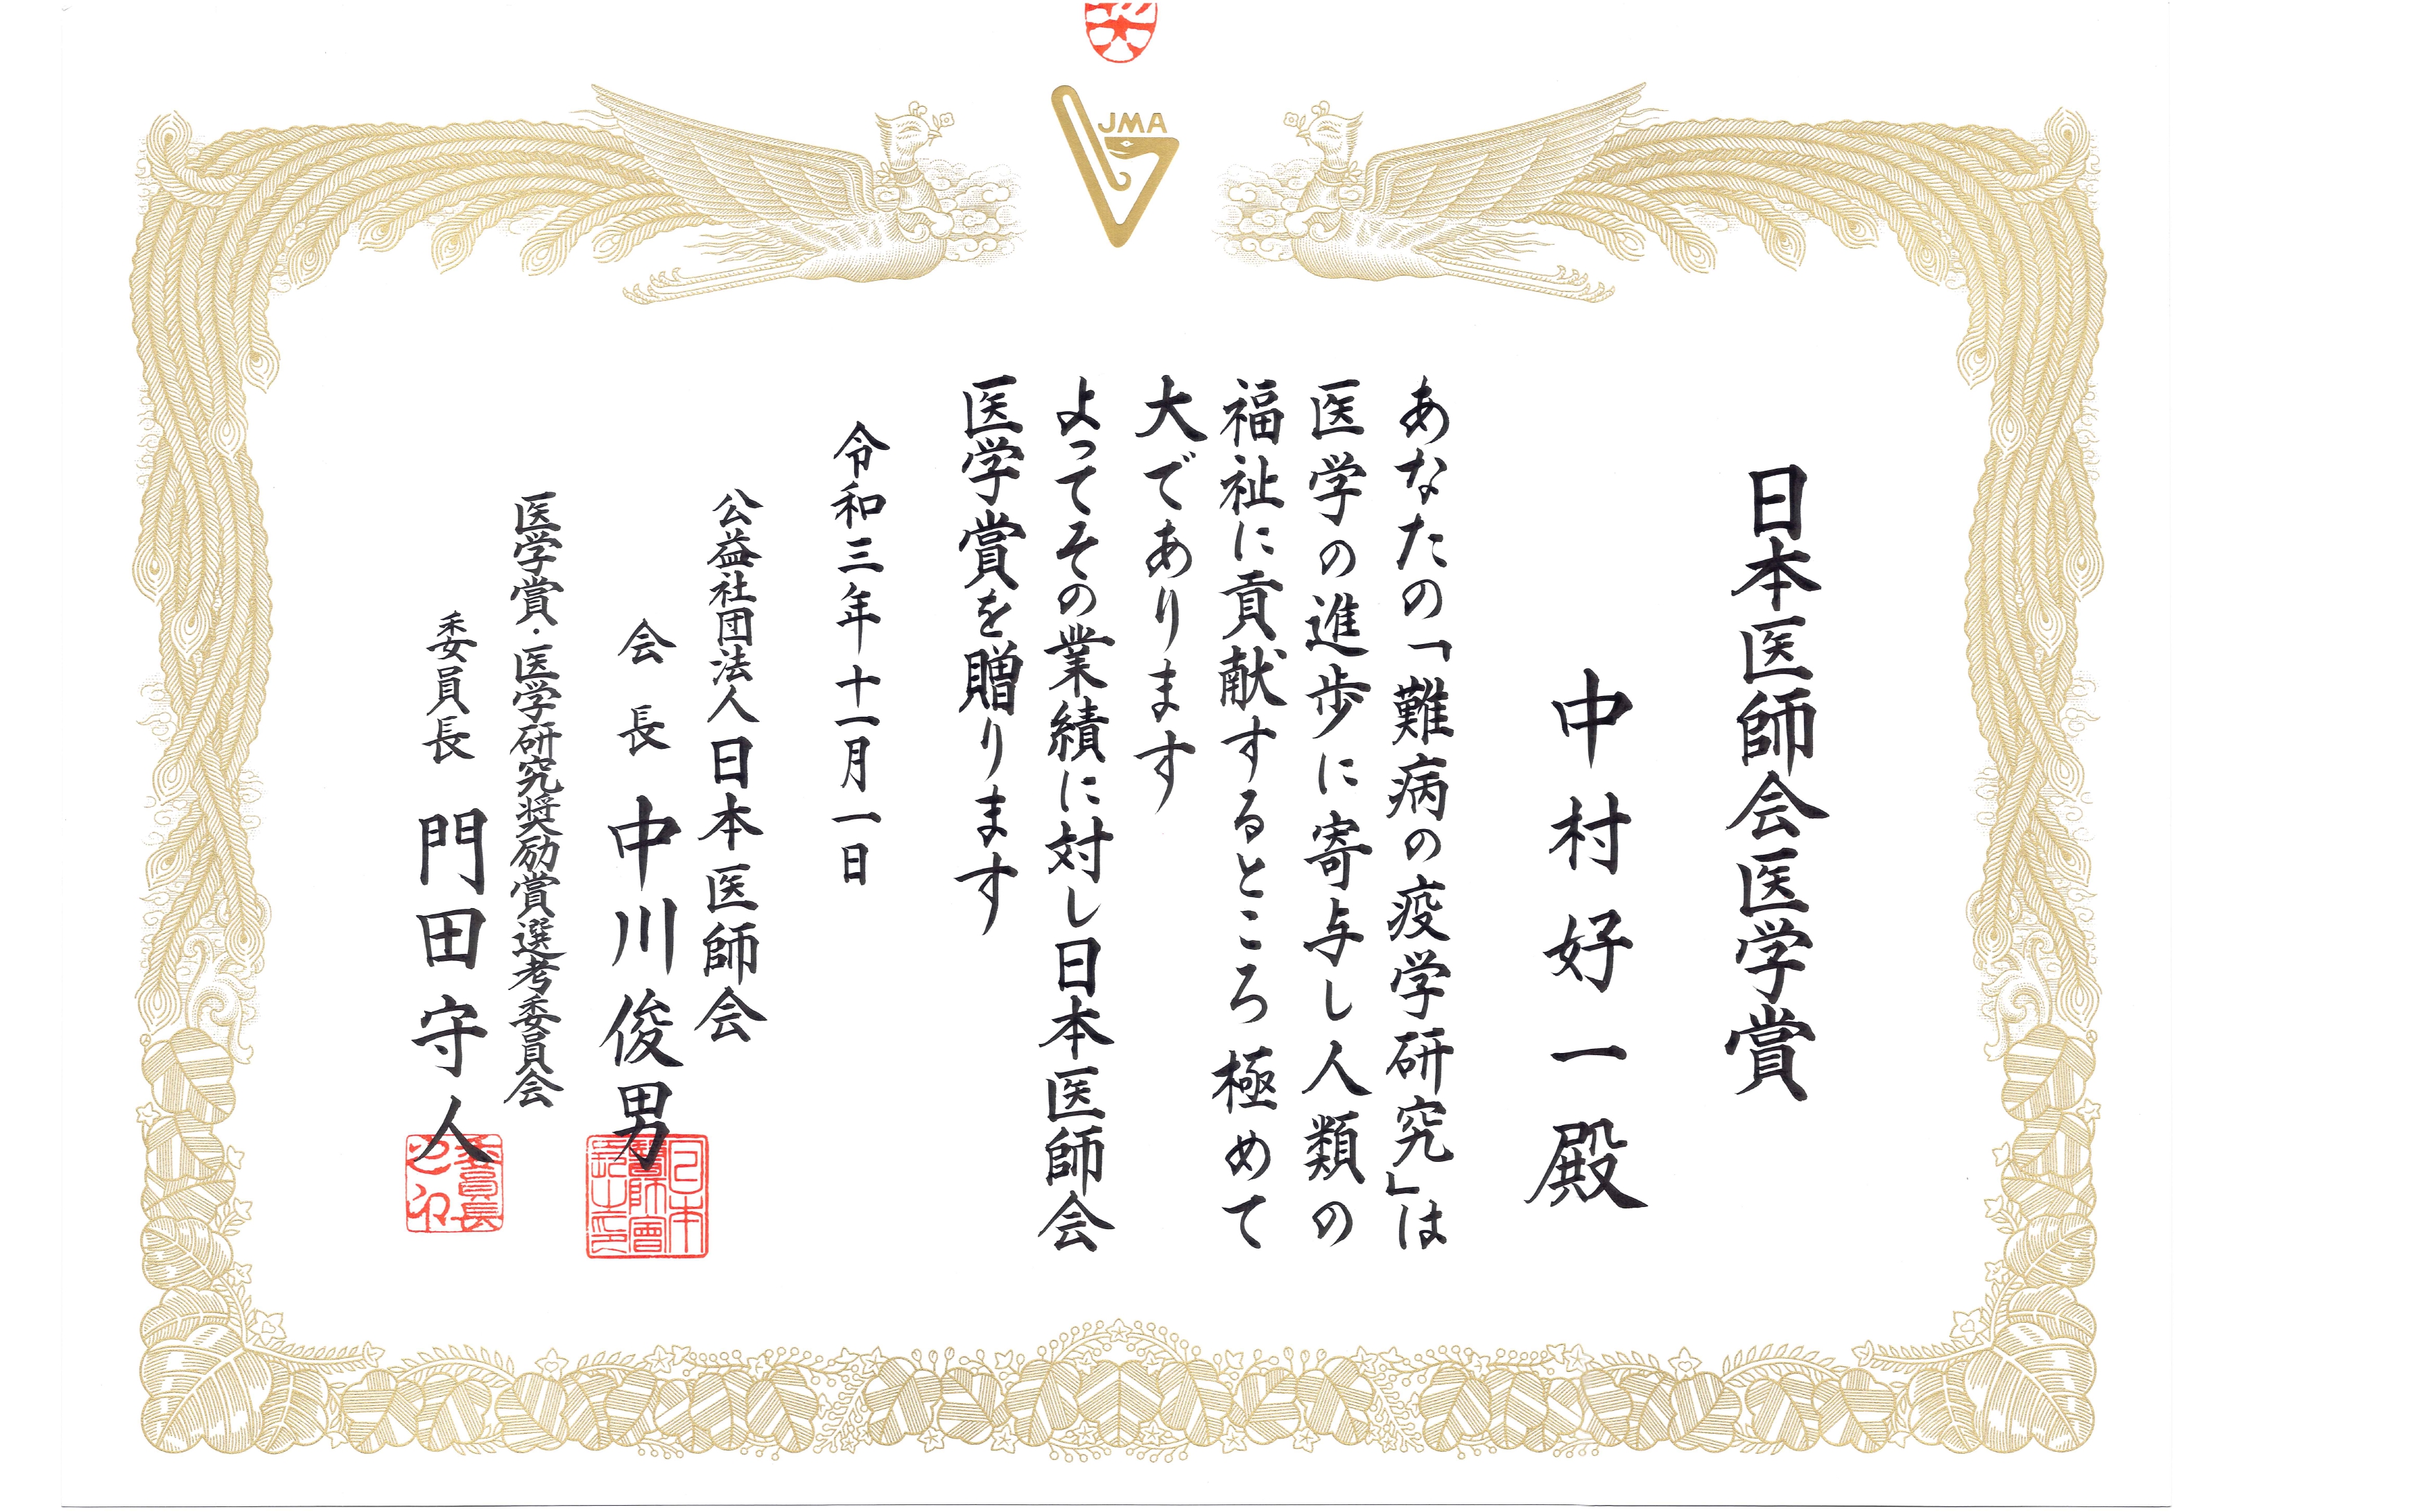 JMA
日本医師会医学賞
中村好一殿
あなたの「難病の疫学研究」は
医学の進歩に寄与し人類の
福祉に貢献するところ極めて
大であります
よってその業績に対し日本医師会
医学賞を贈ります
令和三年十一月一日
公益社団法人日本医師会
会長 中川俊男
日本
醫師會
長之印
医学賞・医学研究奨励賞選考委員会
委員長 門田守人
委員長
之印